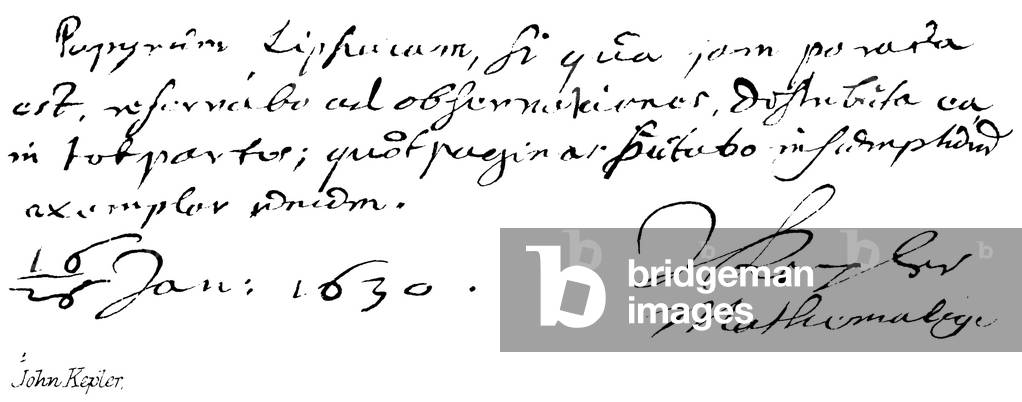 Papyrum Lipsicam, si qua jam parata
est, reservabo ad observationes, distributa ea
in tot partes; quot paginas putabo in
exemplar unum.
16/26 Jan: 1630.
J Kepler
Mathematicus
bridgeman
images
John Kepler.